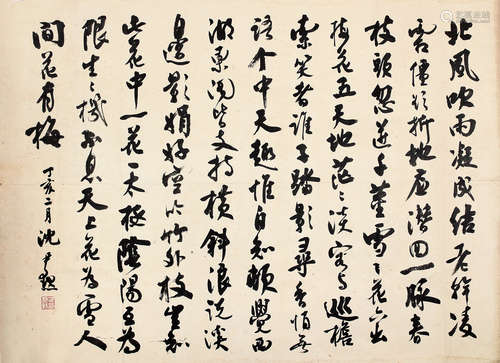 北風吹雨凝成結老幹凌
雲僵欲折地底潛回一脈春
枝頭忽迸千萬雪雪花六出
梅花五天地茫茫淡寒与巡檐
索笑者誰子踏影尋香悄無
語个中天趣惟自知頓覺西
湖皆支持橫斜浪說溪
邊影娟好空吟竹外枝知
此花中一花一太極陰陽互為
限生生機不息天上花為雪人
間花有梅
丁亥二月沈尹默